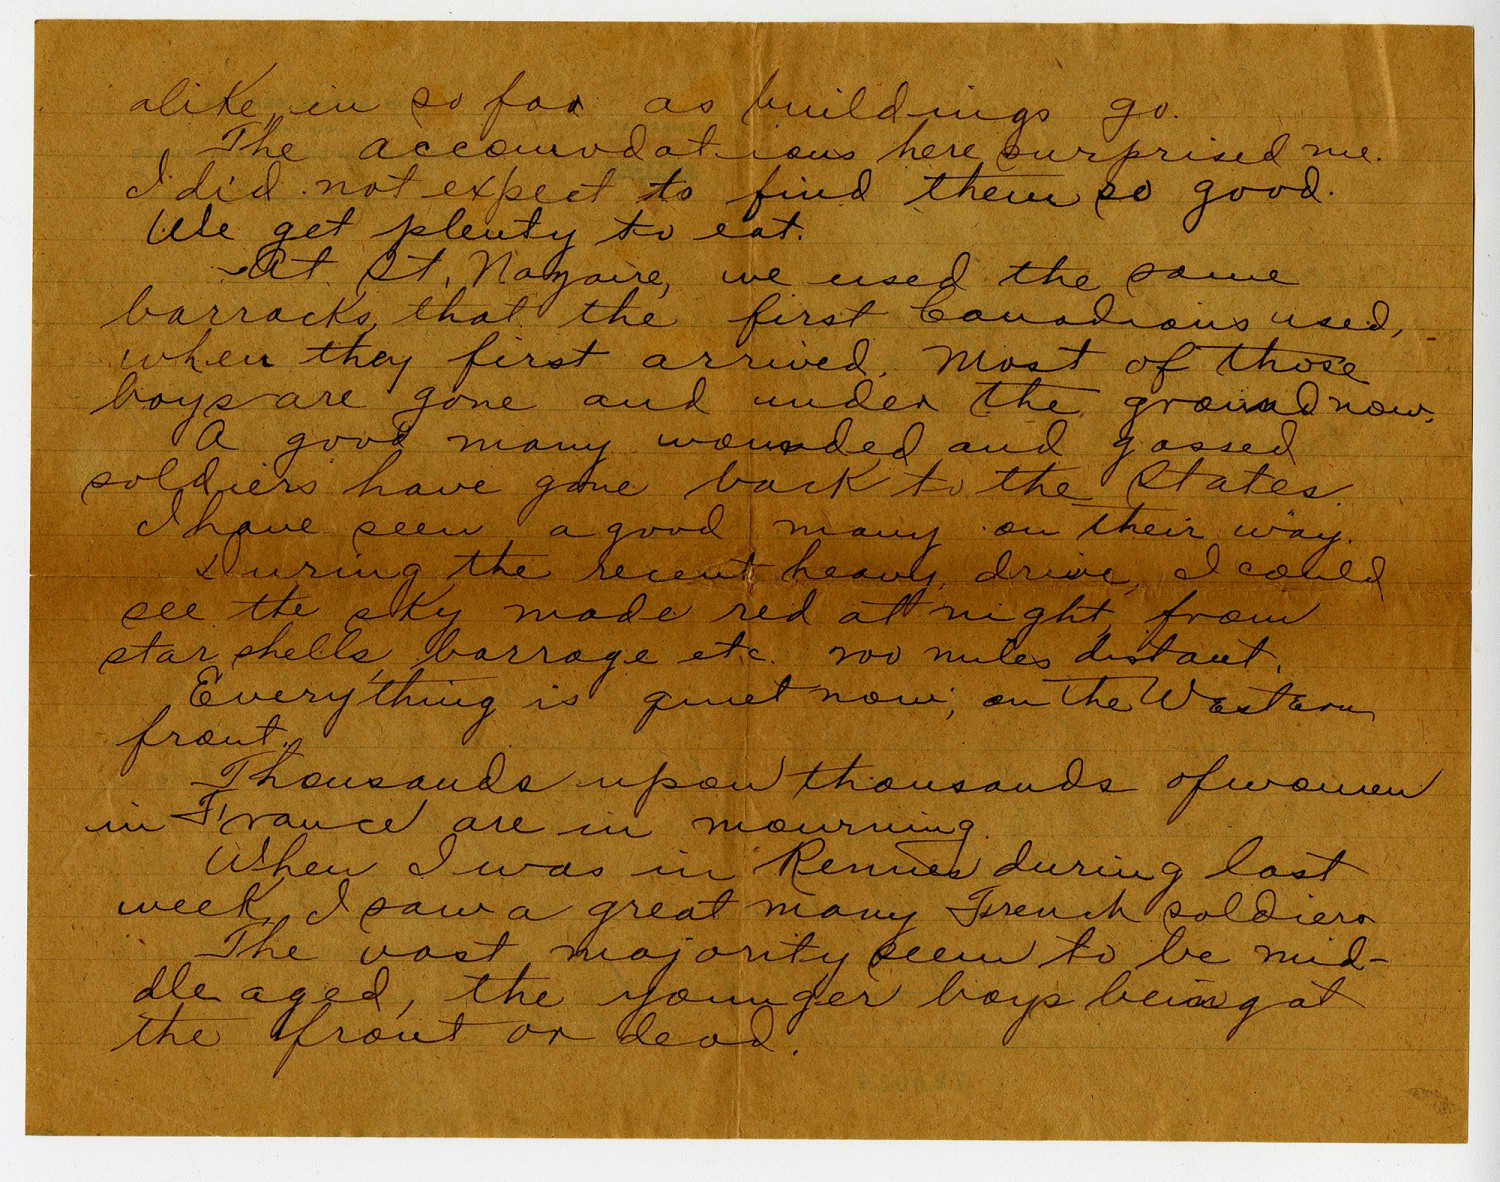 alike, in so far as buildings go.
The accomodations here surprised me.
I did not expect to find them so good.
We get plenty to eat.
At St. Nazaire, we used the same
barracks, that the first Canadians used,
when they first arrived. Most of those
boys are gone and under the ground now.
A good many wounded and gassed
soldiers have gone back to the States.
I have seen a good many on their way.
During the recent heavy drive, I could
see the sky made red at night, from
star shells, barrage etc. 200 miles distant.
Everything is quiet now, on the Western
front.
Thousands upon thousands of women
in France are in mourning.
When I was in Rennes during last
week, I saw a great many French soldiers
The vast majority seem to be mid-
dle aged, the younger boys being at
the front or dead.